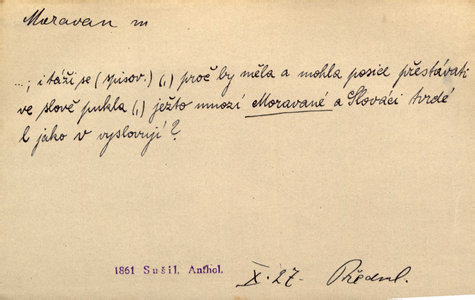 Moravan m
...; i táži se (spisov.) (,) proč by měla a mohla posice přestávati
ve slově pukla (,) ježto mnozí Moravané a Slováci tvrdé
l jako v vyslovují?
1861 Sušil. Anthol. X. 27.